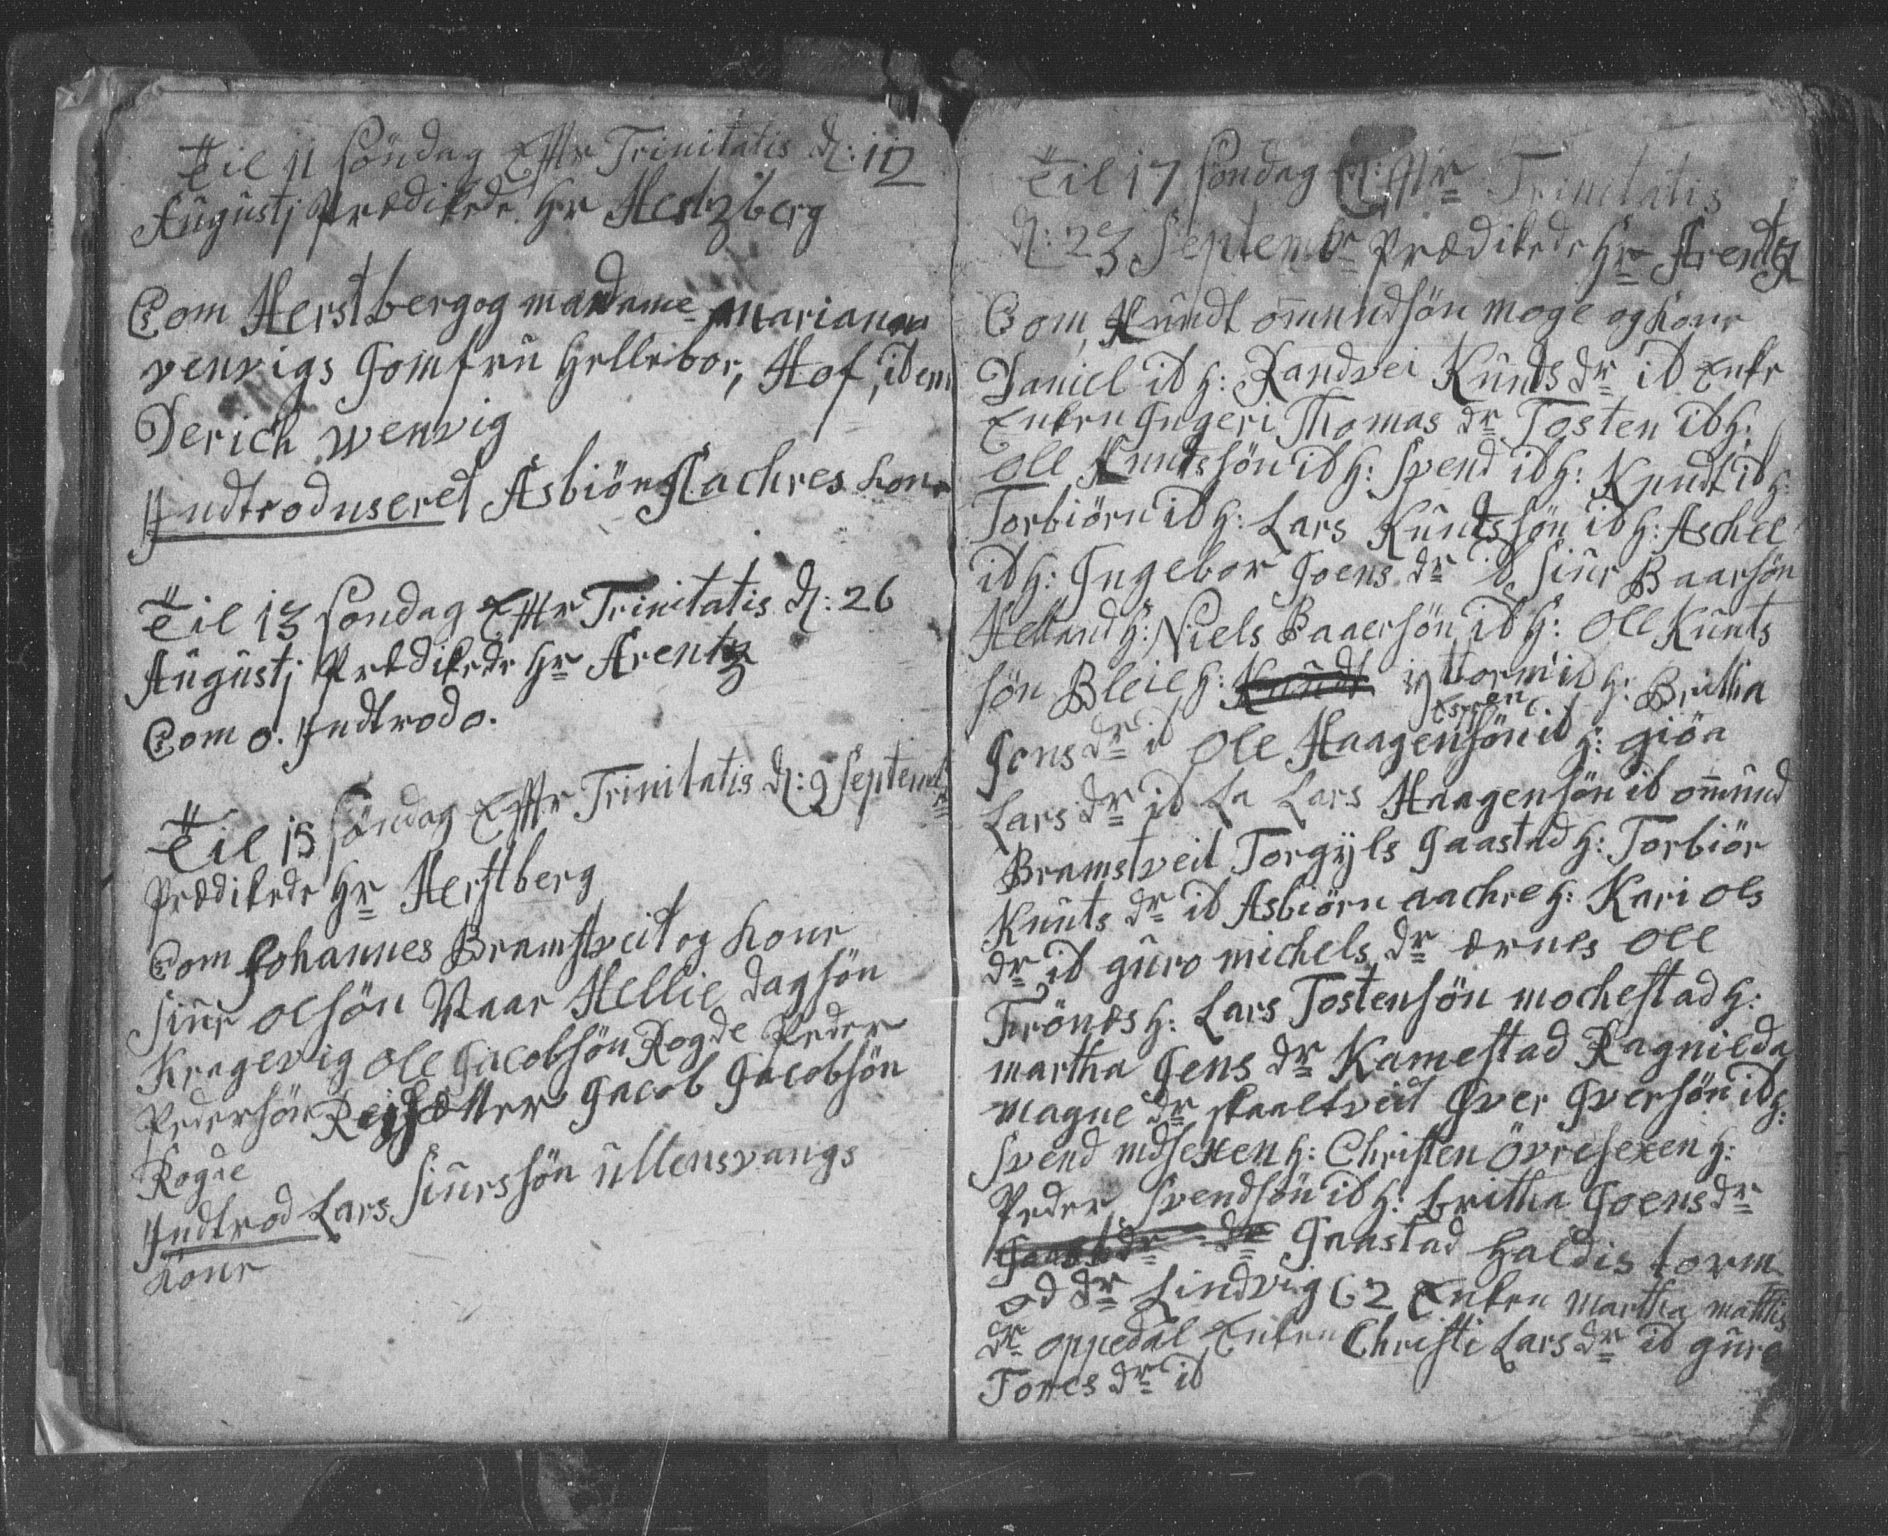 Til 11 Söndag Efftr Trinitatis d: 12
Augustj Prædikede Hr Hertzberg
Com Herstberg og madame mariana
venvigs Jomfru Hellebor, Hof, idem
Derich Wenvig
Indtroduseret Asbiön Aachres kone
Til 13 Söndag Efftr Trinitatis d: 26
Augustj Prædikede Hr Arentz
Com o. Indtrodo.
Til 15 Söndag Efftr Trinitatis d: 9 Septembr
Prædikede Hr Herstberg
Com Johannes Bramstveit og kone
Siur olsön Maar Hellie dagsön
Kragevig Ole Jacobsön Rogde Peder
Pedersön Reisætter Jacob Jacobsön
Rogde
Indtrod Lars Siurssön ullensvangs
kone
Til 17 Söndag Efftr Trinitatis
d: 23 Septembr Prædikede Hr Arentz
Com, Kundt omundsön moge og kone
Daniel ib h: Randvei Kunts dr ib Enke
Enken Ingeri Thomas dr Tosten ib h:
Ole Kundssön ib h: Svend ib h: Kundt ib h:
Torbiörn ib h: Lars Kuntssön ib h: Aschel
ib h: Ingebor Joens dr ib Siur Baarsön
Helland h: Niels Baaersön ib h: Ole Kunts
sön Bleie h: Kundt yttorm ib h: Britha
Espen
Jons dr ib Ole Haagensön ib h: giöa
Lars dr ib La Lars Haagensön ib omund
Bramstveit Torgyls Jaastad h: Torbiör
Kunts dr ib Asbiörn aachre h: Kari Ols
dr ib guro michels dr ærnes Ole
Trönes h: Lars Tostensön mochestad h:
martha Jens dr Kamestad Ragnilda
magne dr skaaltveit Iver Iversön ib h:
Svend ndsexen h: Christen övresexen h:
Peder Svendsön ib h: britha Joens dr
dr Jaastad Haldis torm
od dr Lindvig 62 Enken martha mathis
dr oppedal Enken Christi Lars dr ib gure
Tones dr ib